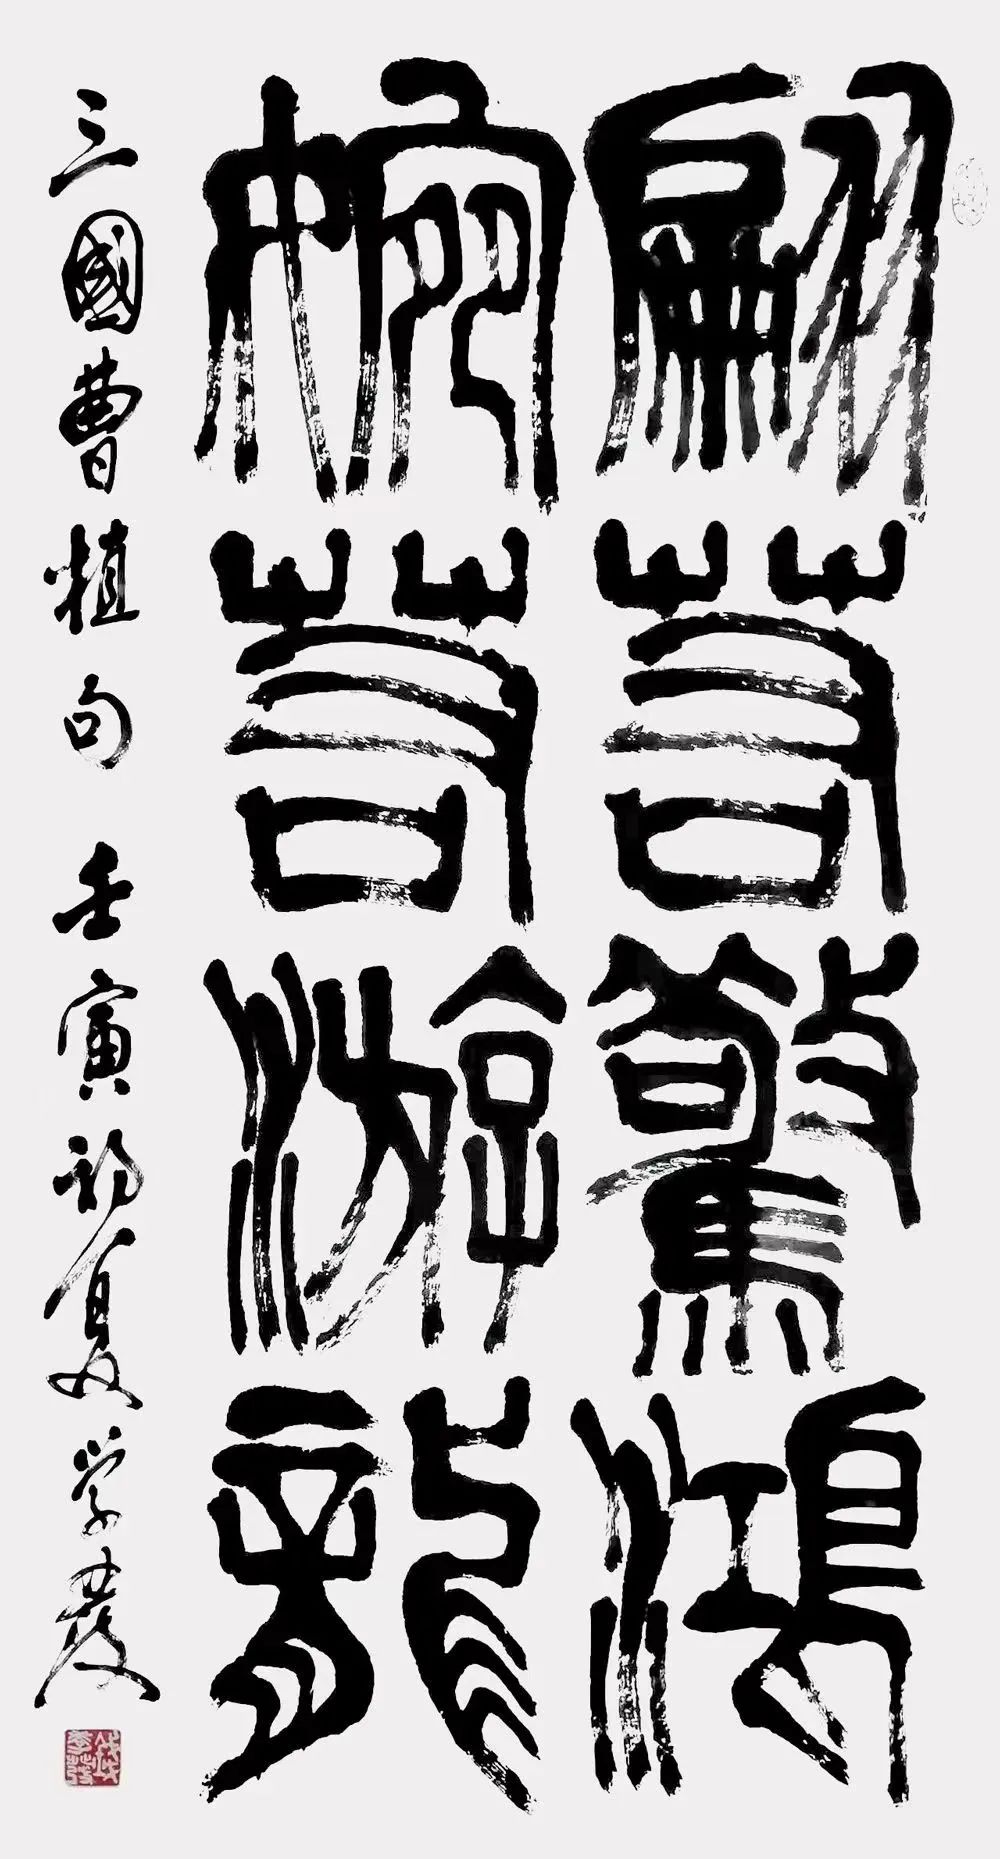 翩若驚鴻
婉若游龍
三國曹植句 壬寅初夏 学